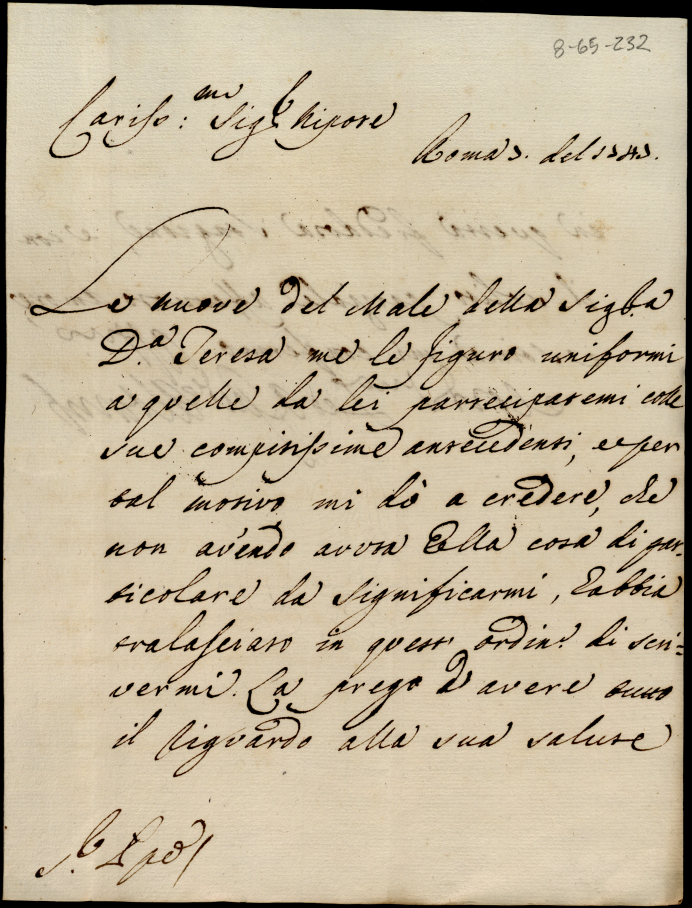 8-65-232
Cariss:mo Sigr Nipote
Roma 3. del 1743.
Le nuove del Male della Sigra
D.a Teresa me le figuro uniformi
a quelle da lei partecipatemi colle
sue compitissime antecedenti, e per
tal motivo mi dò a credere, che
non avendo avuta Ella cosa di par-
ticolare da significarmi, habbia
tralasciato in questo ordin.o di scri=
vermi. La prego d'avere tutto
il riguardo alla sua salute